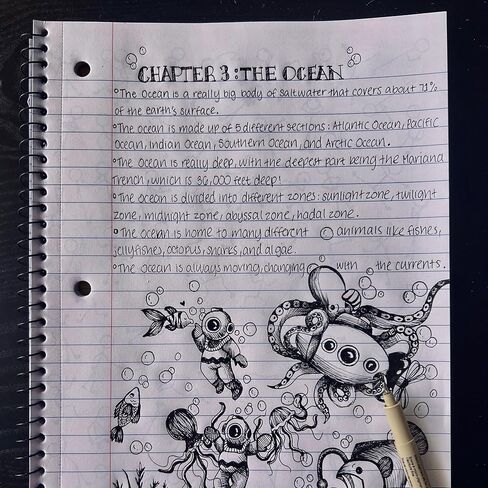 CHAPTER 3: THE OCEAN
°The Ocean is a really big body of saltwater that covers about 71%
of the earth's surface.
°The ocean is made up of 5 different sections: Atlantic Ocean, Pacific
Ocean, Indian Ocean, Southern Ocean, and Arctic Ocean.
°The Ocean is really deep, with the deepest part being the Mariana
Trench, which is 36,000 feet deep!
°The ocean is divided into different zones: sunlight zone, twilight
zone, midnight zone, abyssal zone, hadal zone.
°The ocean is home to many different animals like fishes,
jellyfishes, octopus, sharks, and algae.
°The ocean is always moving, changing with the currents.